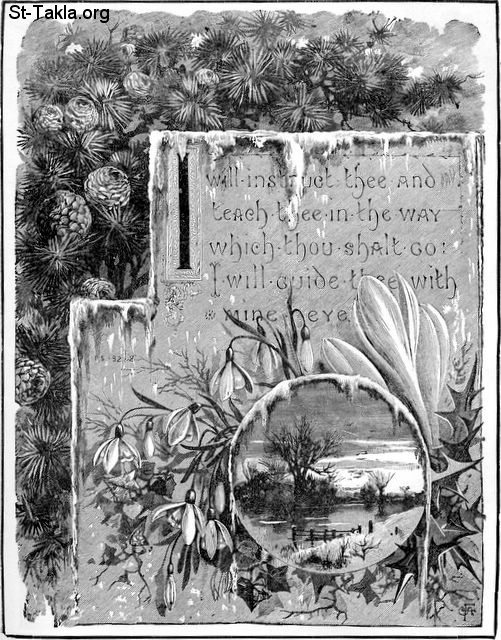 St-Takla.org
I will·instruct·thee·and
teach·thee·in·the·way
which·thou·shalt·go:
I·will·guide·thee·with
mine·eye
PS·32·8